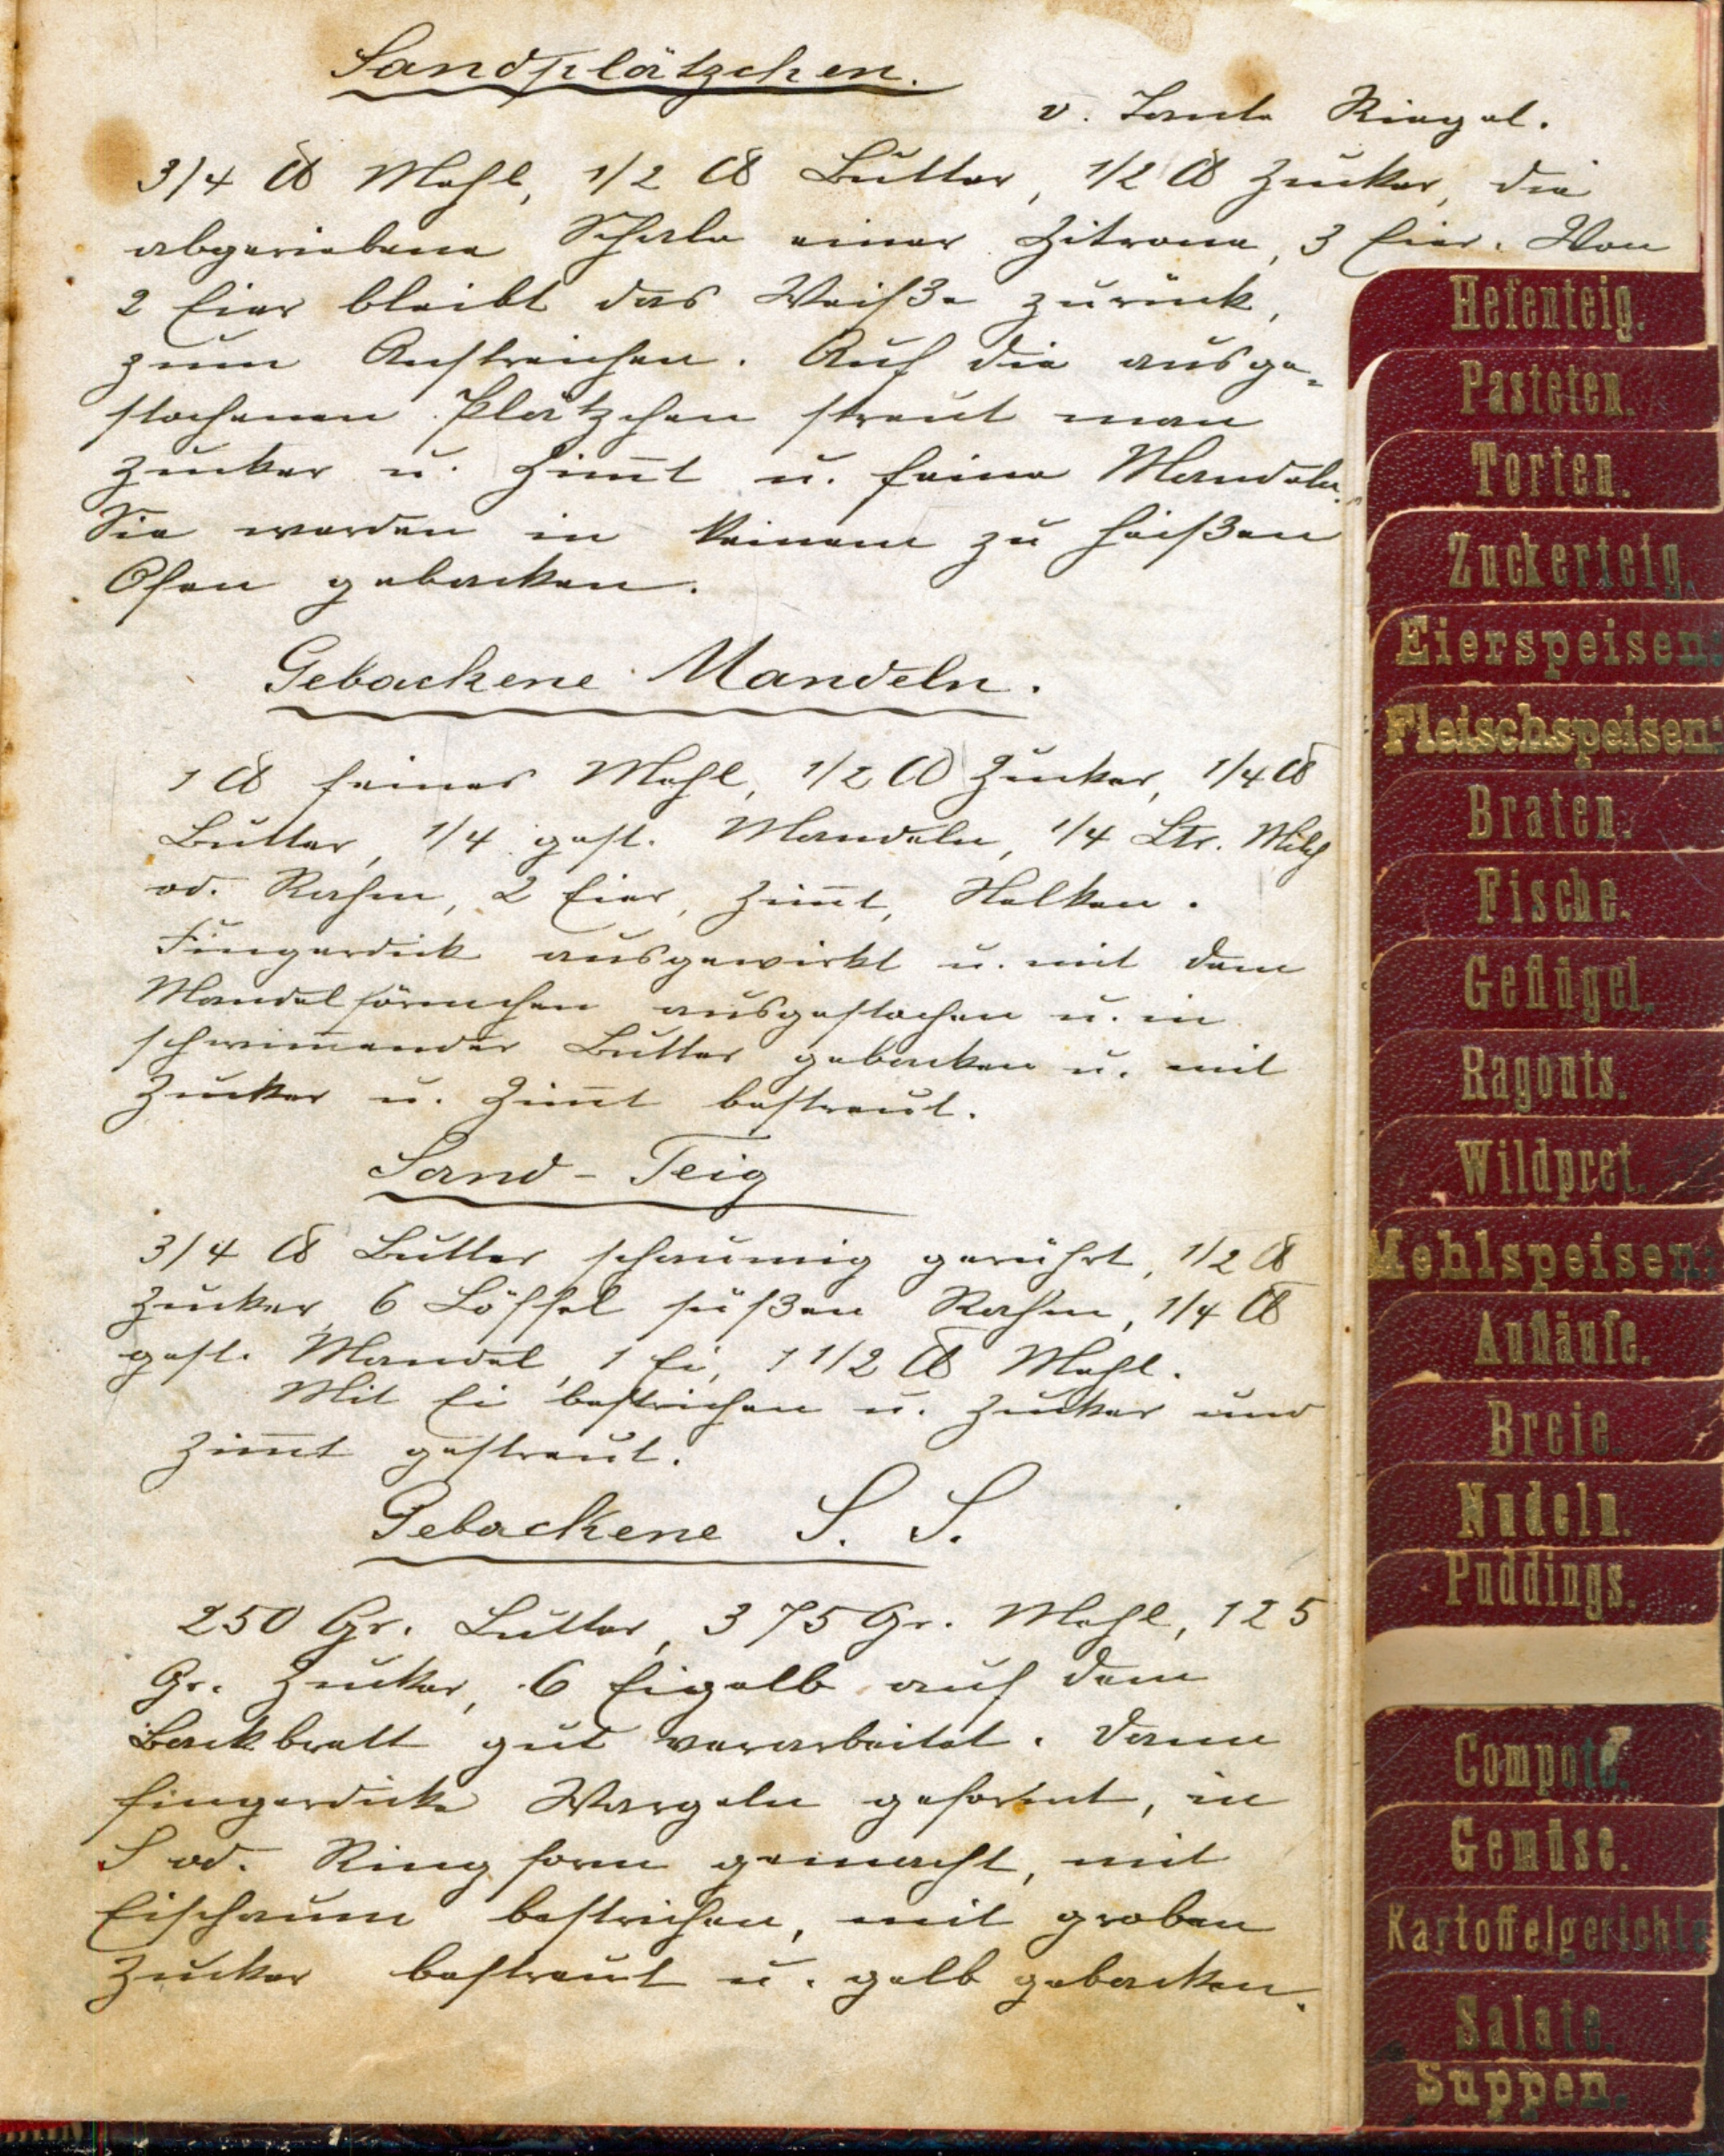 Sandplätzchen.
v. Tante Riegel.
3/4 ℔ Mehl, 1/2 ℔ Butter, 1/2 ℔ Zucker, die
abgeriebene Schale einer Zitrone, 3 Eier. Von
2 Eier bleibt das Weiße zurück,
zum Anstreichen. Auf die ausge-
stochenen Plätzchen streut man
Zucker u. Zim̅t u. feine Mandeln.
Sie werden in keinem zu heißen
Ofen gebacken.
Gebackene Mandeln.
1 ℔ feines Mehl, 1/2 ℔ Zucker, 1/4 ℔
Butter, 1/4 gest. Mandeln, 1/4 Ltr. Milch
od. Rahm, 2 Eier, Zim̅t, Nelken.
Fingerdick ausgewirkt u. mit dem
Mandelförmchen ausgestochen u. in
schwim̅ender Butter gebacken u. mit
Zucker u. Zim̅t bestreut.
Sand-Teig
3/4 ℔ Butter schaumig gerührt, 1/2 ℔
Zucker, 6 Löffel süßen Rahm, 1/4 ℔
gest. Mandel, 1 Ei, 1 1/2 ℔ Mehl.
Mit Ei bestrichen u. Zucker und
Zim̅t gestreut.
Gebackene S. S.
250 Gr. Butter, 375 Gr. Mehl, 125
Gr. Zucker, 6 Eigelb auf dem
Backbrett gut verarbeitet. Dann
fingerdicke Wargeln geformt, in
S od. Ringform gemacht, mit
Eischaum bestrichen, mit groben
Zucker bestreut u. gelb gebacken.
Hefenteig.
Pasteten.
Torten.
Zuckerteig.
Eierspeisen.
Fleischspeisen.
Braten.
Fische.
Geflügel.
Ragouts.
Wildpret.
Mehlspeisen.
Aufläufe.
Breie.
Nudeln.
Puddings.
Compote.
Gemüse.
Kartoffelgerichte
Salate.
Suppen.